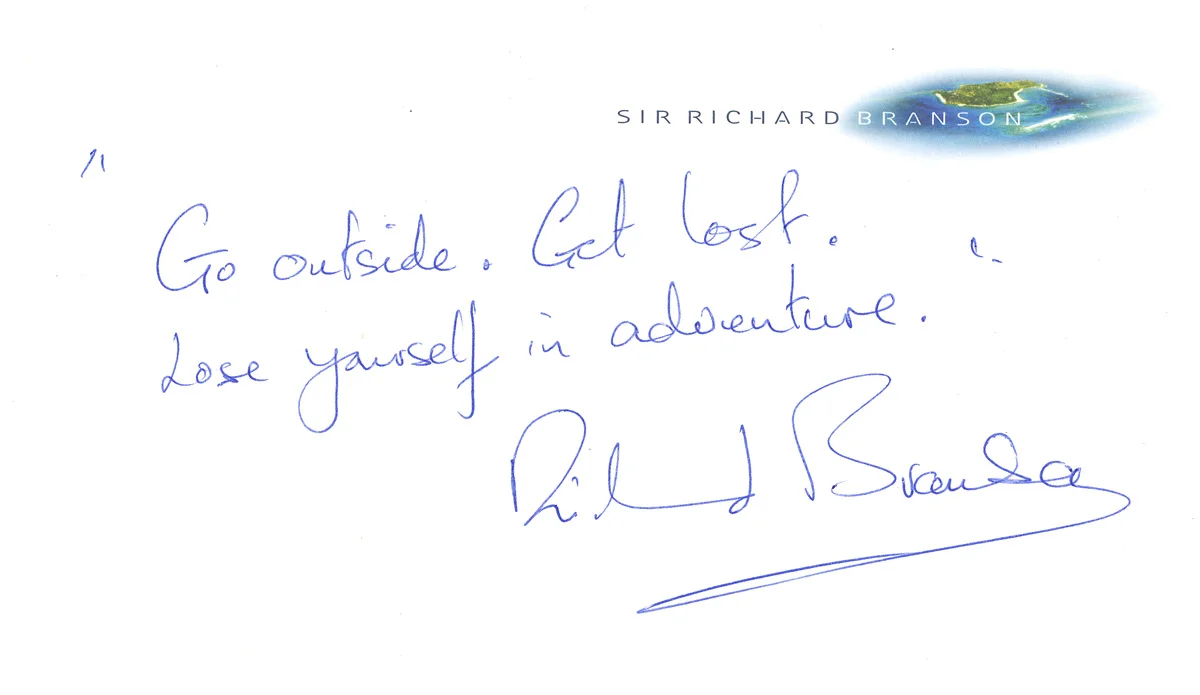 SIR RICHARD BRANSON
"Go outside. Get lost.
Lose yourself in adventure."
Richard Branson